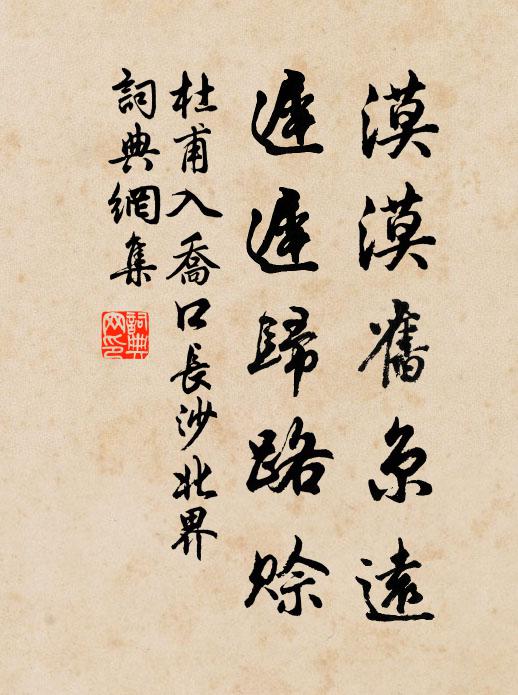 漠漠舊京遠
遲遲歸路賒
杜甫入喬口長沙北界
詞典網集
詞典
网印